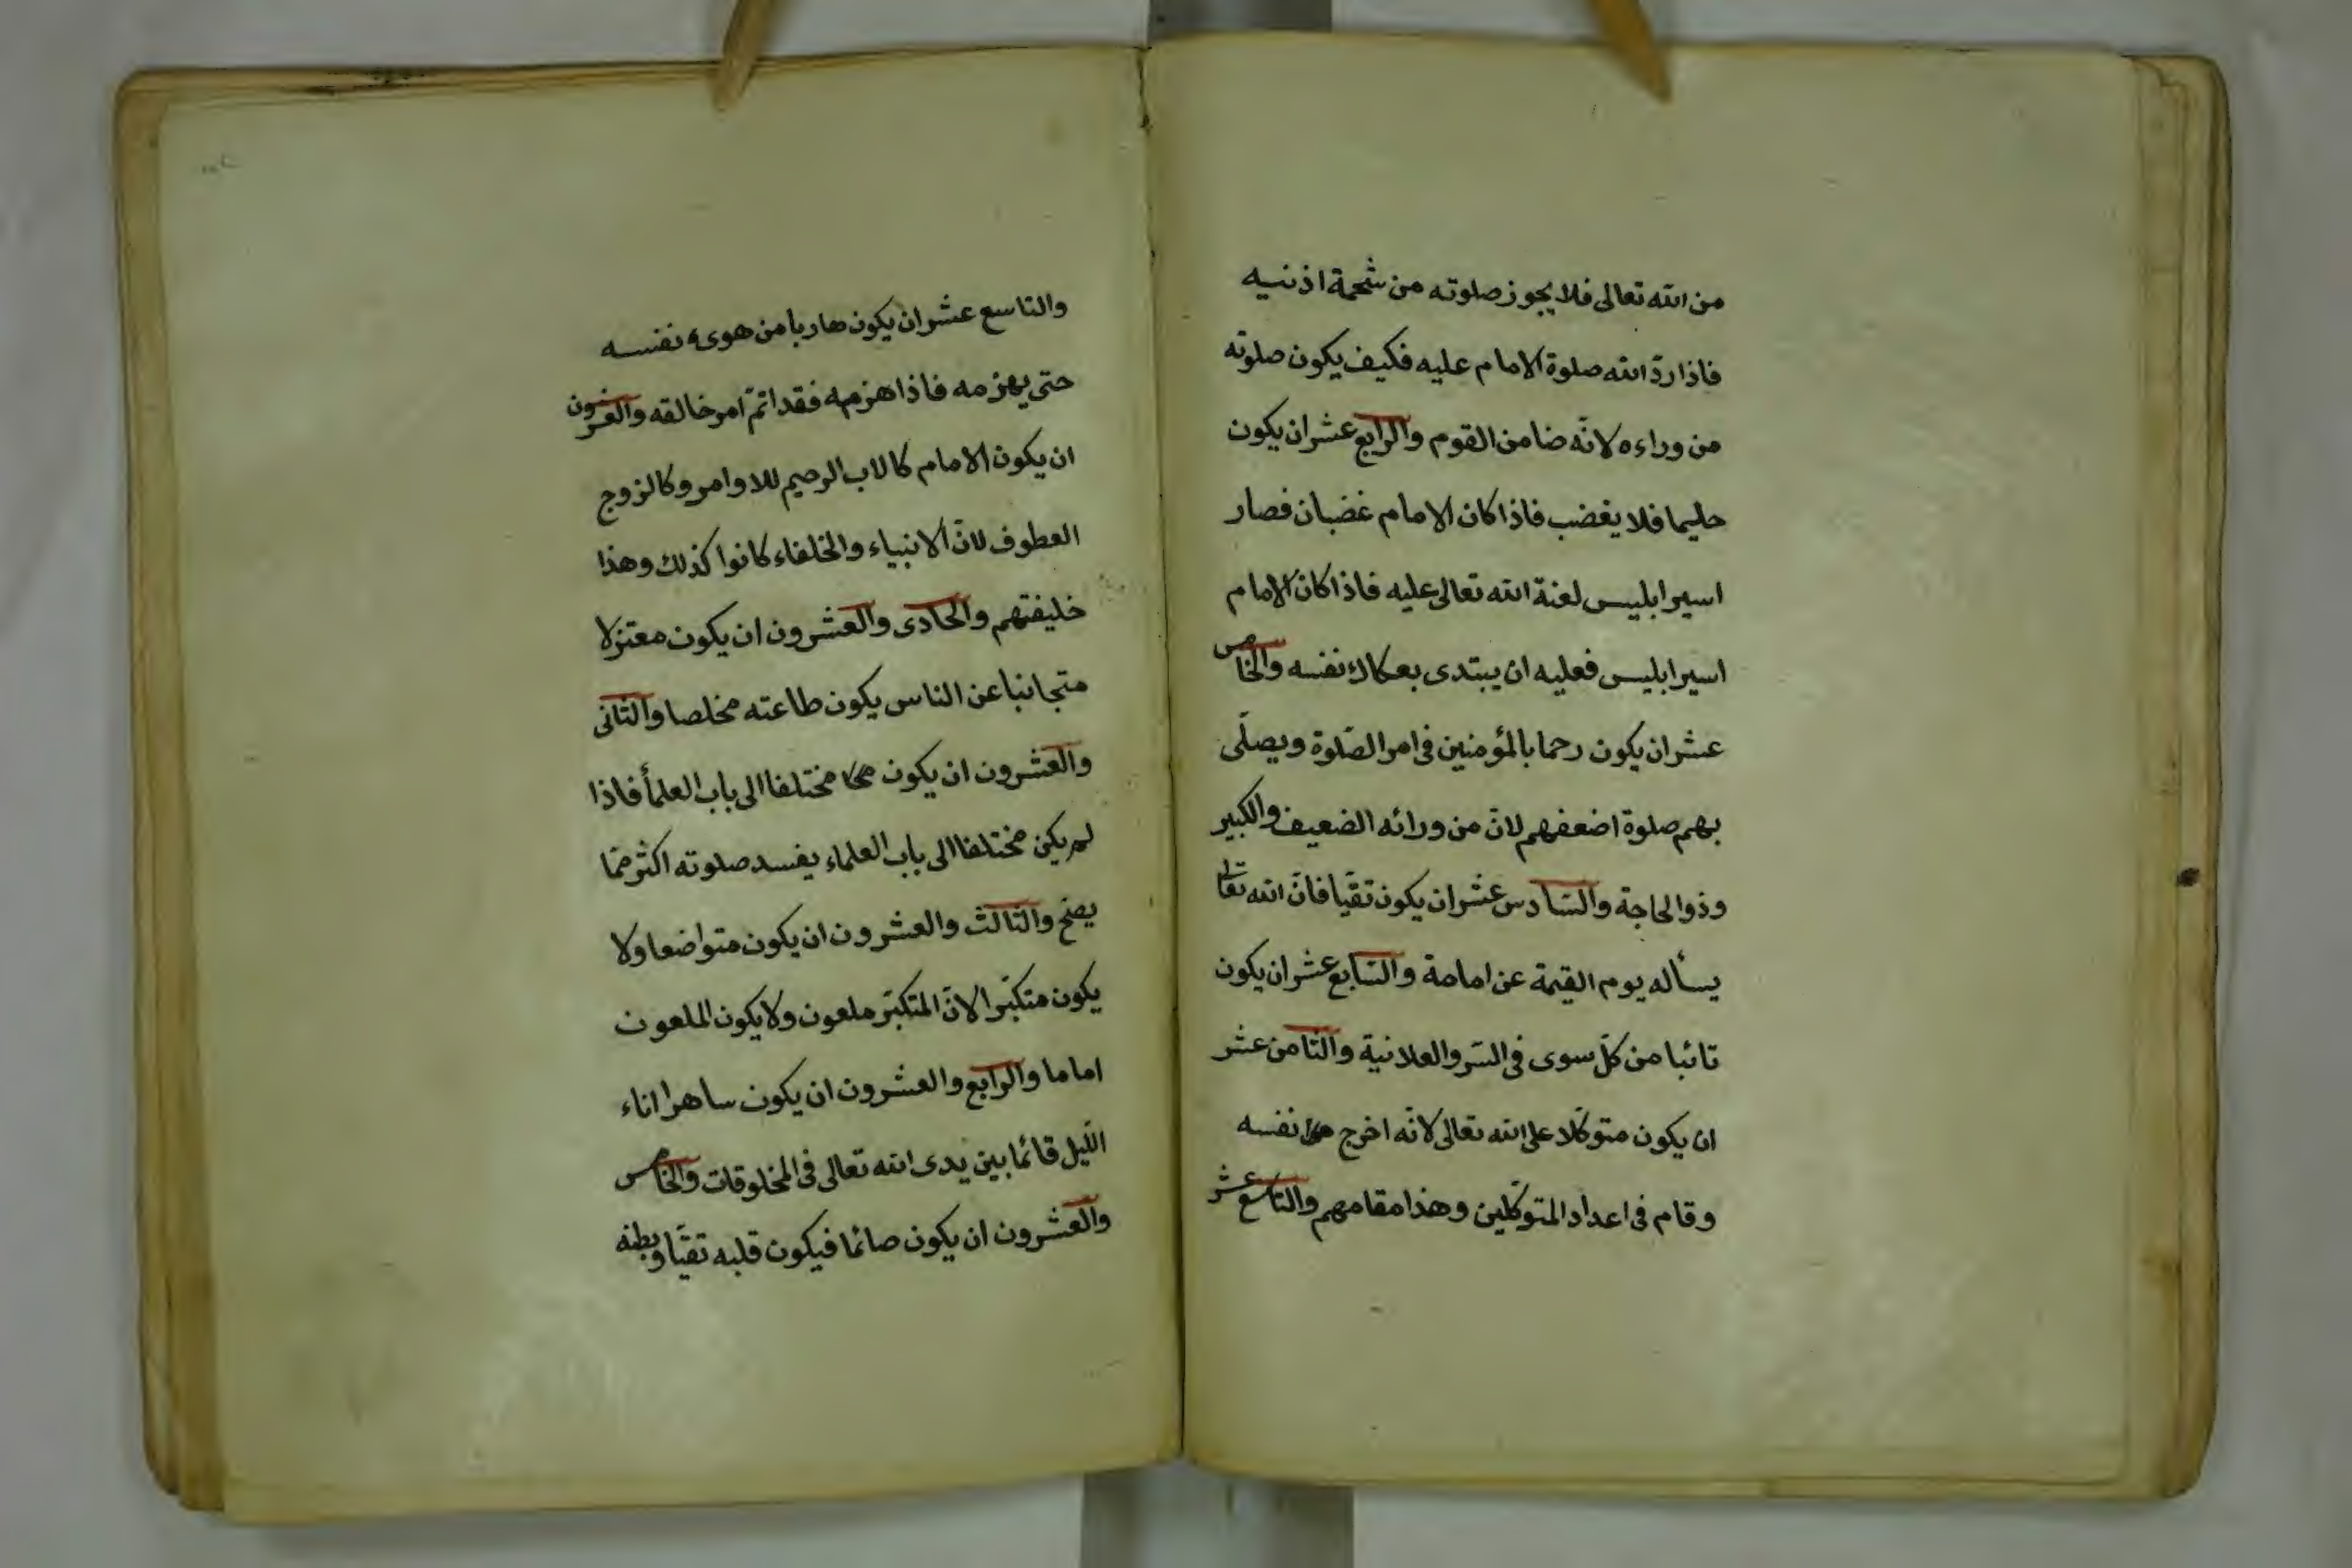 من الله تعالى فلا يجوز صلوته من شحمة اذنيه
فاذا ردّ الله صلوة الامام عليه فكيف يكون صلوته
من وراءه لانّه ضامن القوم والرابع عشر ان يكون
حليما فلا يغضب فاذا كان الامام غضبان فصار
اسير ابليس لعنة الله تعالى عليه فاذا كان الامام
اسير ابليس فعليه ان يبتدى نفسه والخامس
عشر ان يكون رحما بالمؤمنين فى امر الصّلوة ويصلّى
بهم صلوة اضعفهم لانّ من ورائه الضعيف والكبير
وذو الحاجة والسّادس عشر ان يكون تقيّا فانّ الله تعالى
يسأله يوم القيمة عن امامة والسّابع عشر ان يكون
تائبا من كلّ سوى فى السّر والعلانية والثّامن عشر
ان يكون متوكّلا على الله تعالى لانّه اخرج نفسه
وقام فى اعداد المتوكّلين وهذا مقامهم والتاسع عشر
والتاسع عشر ان يكون هاربا من هوى نفسه
حتى يهزمه فاذا هزمه فقد اتمّ امر خالقه والعشرون
ان يكون الامام كالاب الرحيم للاوامر وكالزوج
العطوف لانّ الانبياء والخلفاء كانوا كذلك وهذا
خليفتهم والحادى والعشرون ان يكون معتزلا
متجانبا عن الناس يكون طاعته مخلصا والثانى
والعشرون ان يكون مختلفا الى باب العلمأ فاذا
لم يكن مختلفا الى باب العلماء يفسد صلوته اكثر ممّا
يصح والثالث والعشرون ان يكون متواضعا ولا
يكون متكبّرا لانّ المتكبّر ملعون ولا يكون الملعون
اماما والرابع والعشرون ان يكون ساهرا اناء
اللّيل قائما بين يدى الله تعالى فى المخلوقات والخامس
والعشرون ان يكون صائما فيكون قلبه تقيّا وبطنه